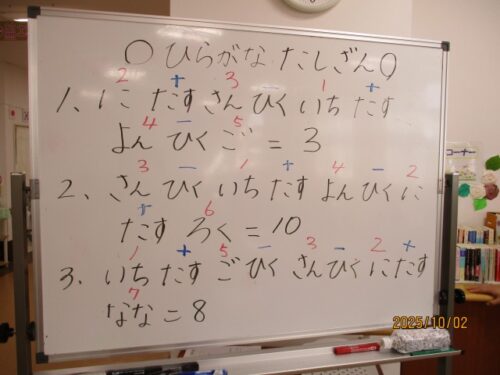 ○ひらがなたしざん○
2 + 3 − 1 +
1、に たす さん ひく いち たす
4 − 5
よん ひく ご = 3
3 − 1 + 4 − 2
2、さん ひく いち たす よん ひく に
+ 6
たす ろく = 10
1 + 5 − 3 − 2 +
3、いち たす ご ひく さん ひく に たす
7
なな = 8
コーナー
2025/10/02